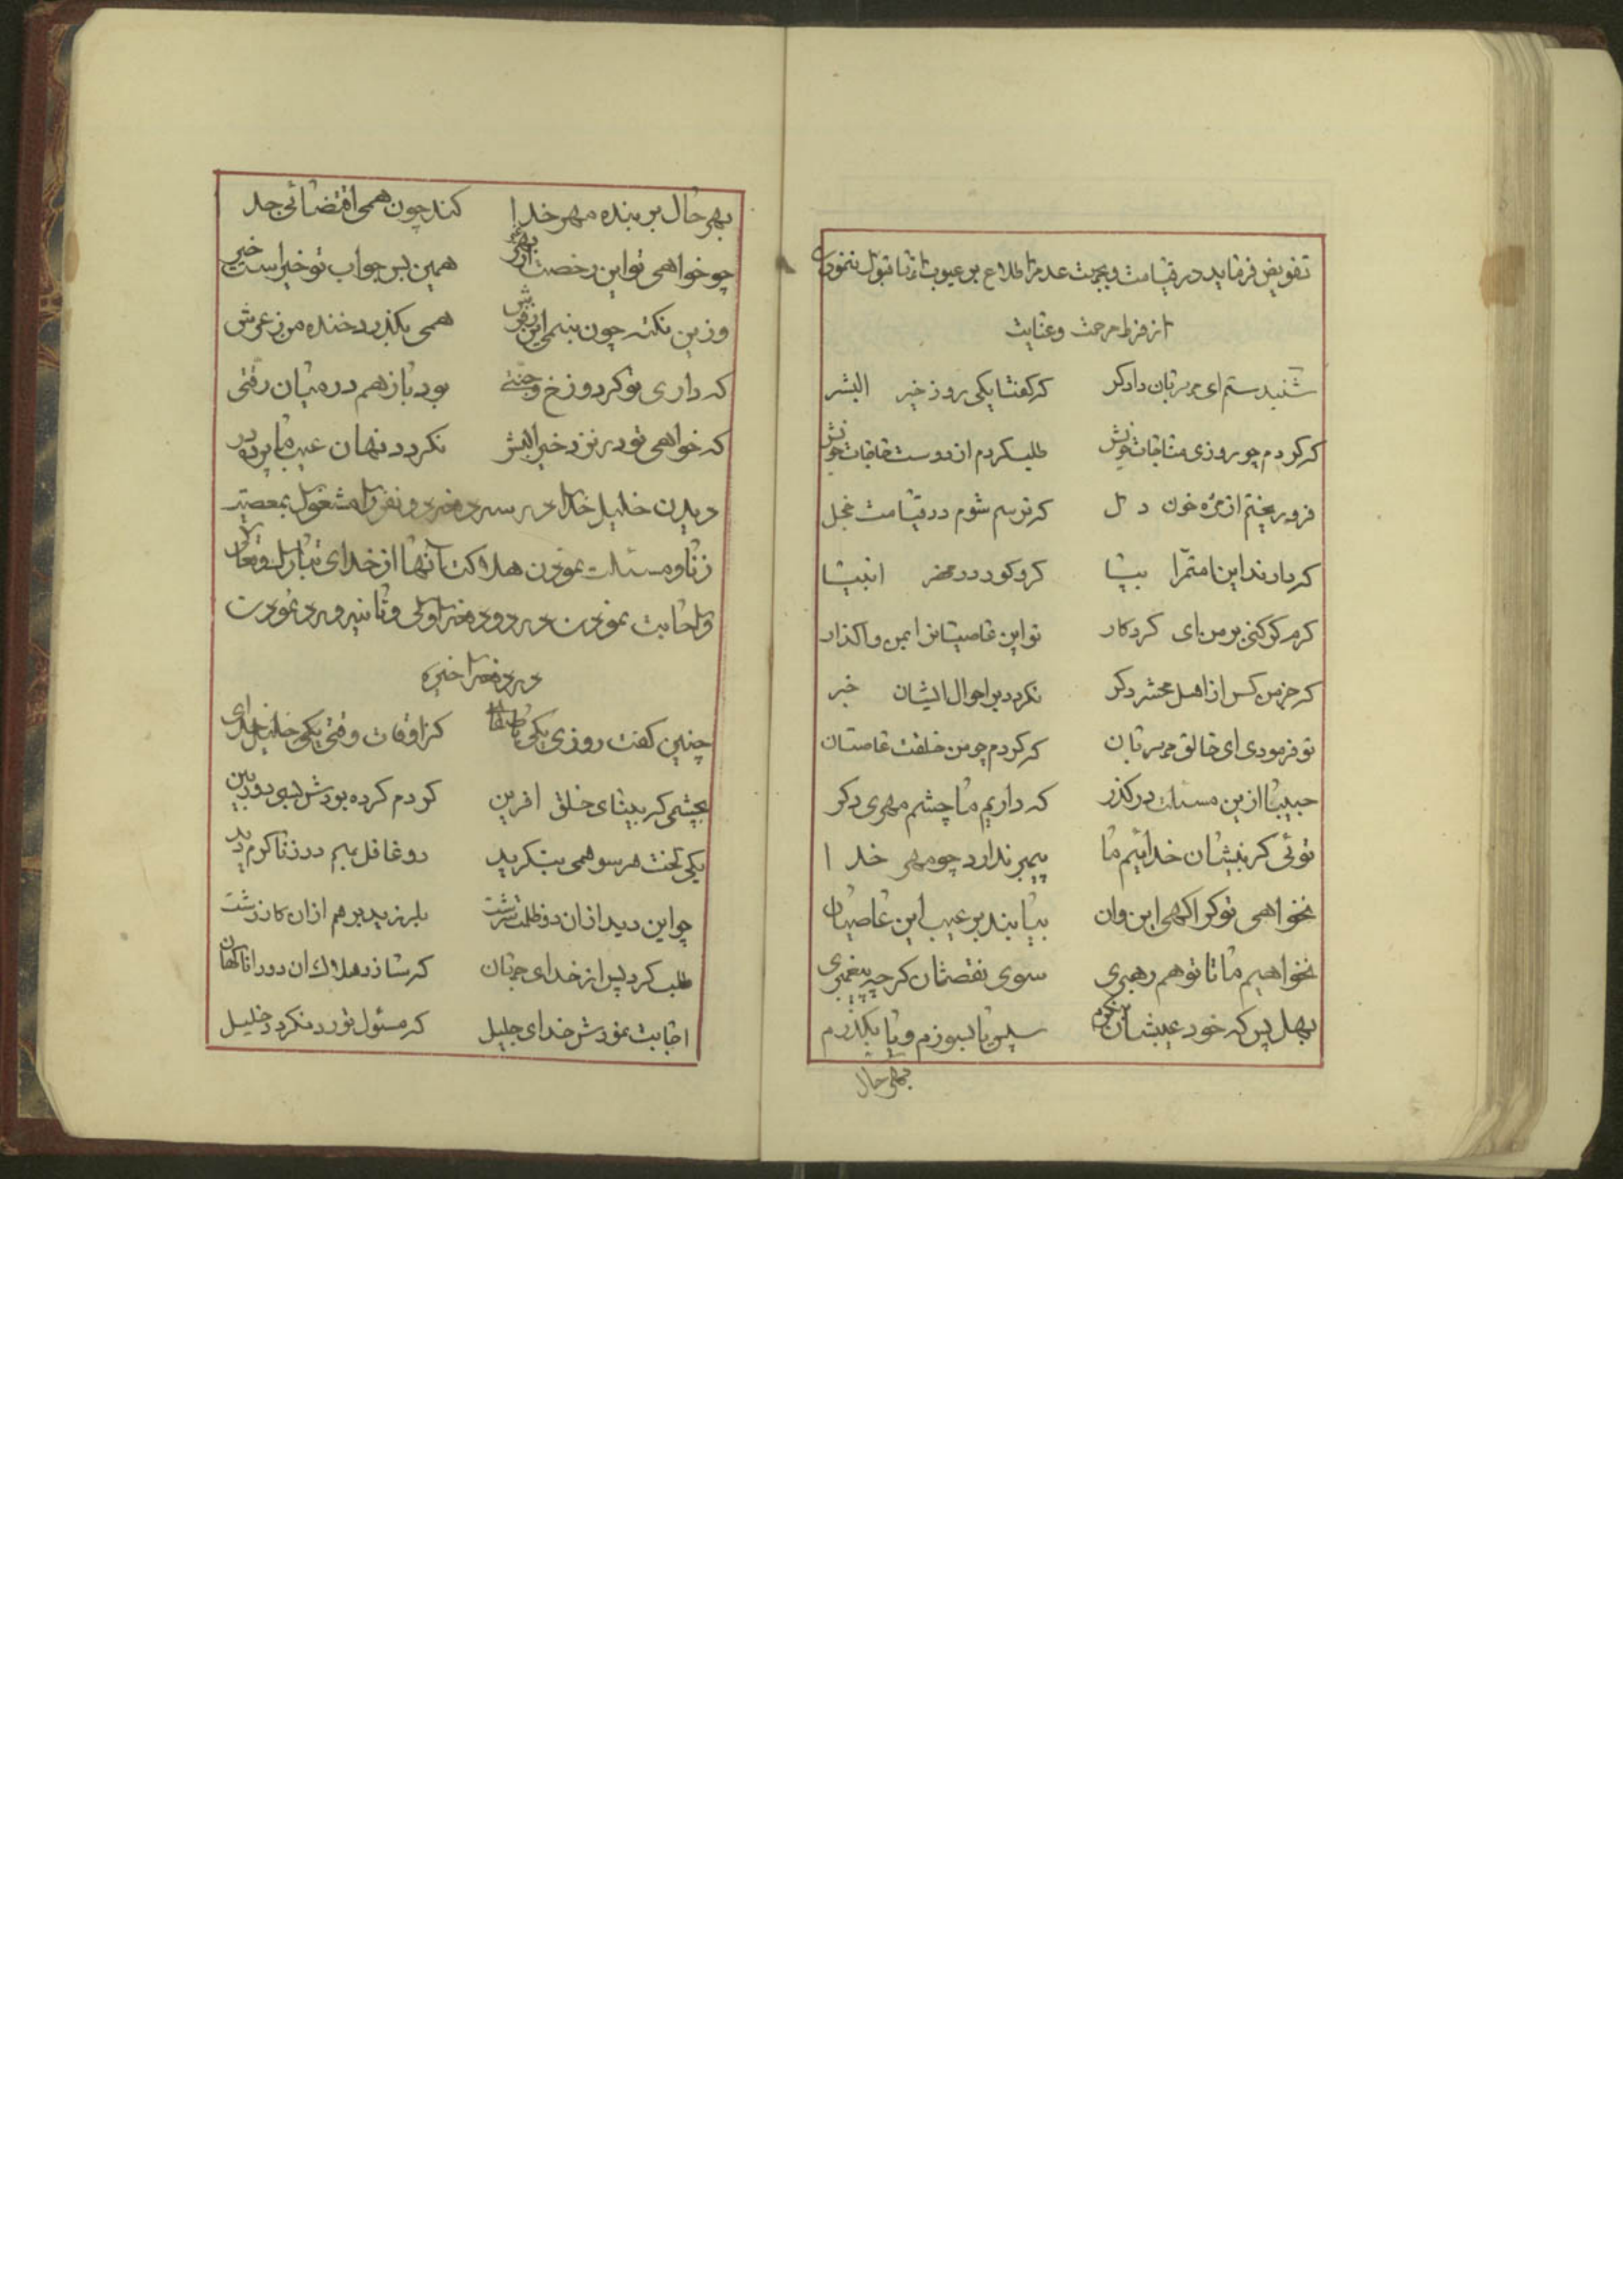 تفویض فرماید در قیامت و بجهت عدم اطلاع بر عیوبات تا قبول ننمودن
از فرط مرحمت و عنایت
شنیدستم ای مهربان دادکر کر کفتا یکی روز خیر البشر
کر کردم چو روزی مناجات خویش طلب کردم از دوست حاجات خویش
فرو ریختم از مژه خون دل کر ترسم شوم در قیامت خجل
کر دارند این امتمرا بپا کر و کور در محضر انبیا
کرم کر کنی بر من ای کردکار تو این عاصیانرا بمن واکذار
کر جز من کس از اهل محشر دکر نکردد بر احوال ایشان خبر
تو فرمودی ای خالق مهربان کر کردم چو من خلقت عاصیان
حبیبا ازین مسئلت درکذر که داریم ما چشم مهری دکر
توئی کر نبیشان خدائیم ما پیمبر ندارد چو مهر خدا
نخواهی تو کر اکهی این و آن بیابند بر عیب این عاصیان
نخواهیم ما تا تو هم رهبری سوی نقصشان کرچه پیغمبری
بهل پس که خود عیبشان بنکرم سپس یا بسوزم و یا بکذرم
بهر حال
بهر حال بر بنده مهر خدا کند چون همی اقتضائی جدا
چو خواهی تو این رخصت ازبهر همین بس جواب تو خیر است خیر
وزین نکته چون بینم این همی بکذرد خنده من ز عرش
که داری تو کر دوزخ و جنتی بود باز هم در میان رفتی
که خواهی تو در نزد خیر البشر نکردد نهان عیب ما پرده در
دیدن خلیل خدا در سه دفعه دو نفر را مشغول بمعصیت
زنا و مسئلت نمودن هلاکت آنها از خدای تبارک و تعالی
و اجابت نمودن در دو دفعه اولی و ثانیه و رد نمودن
در دفعه اخیره
چنین کفت روزی یکی کز اوقات وقتی یکی خلیل خدای
بچشمی کر بینای خلق افرین کر دم کرده بودش بسی دوربین
یکی تخت هر سو همی بنکرید دو غافل بهم در زنا کرم دید
چو این دید ازان دو ظلمت سرشت بلرزید برهم ازان کار زشت
طلب کرد پس از خدای جهان کر سازد هلاک ان دو را ناکهان
اجابت نمودش خدای جلیل که مسئول تو رد نکردد خلیل